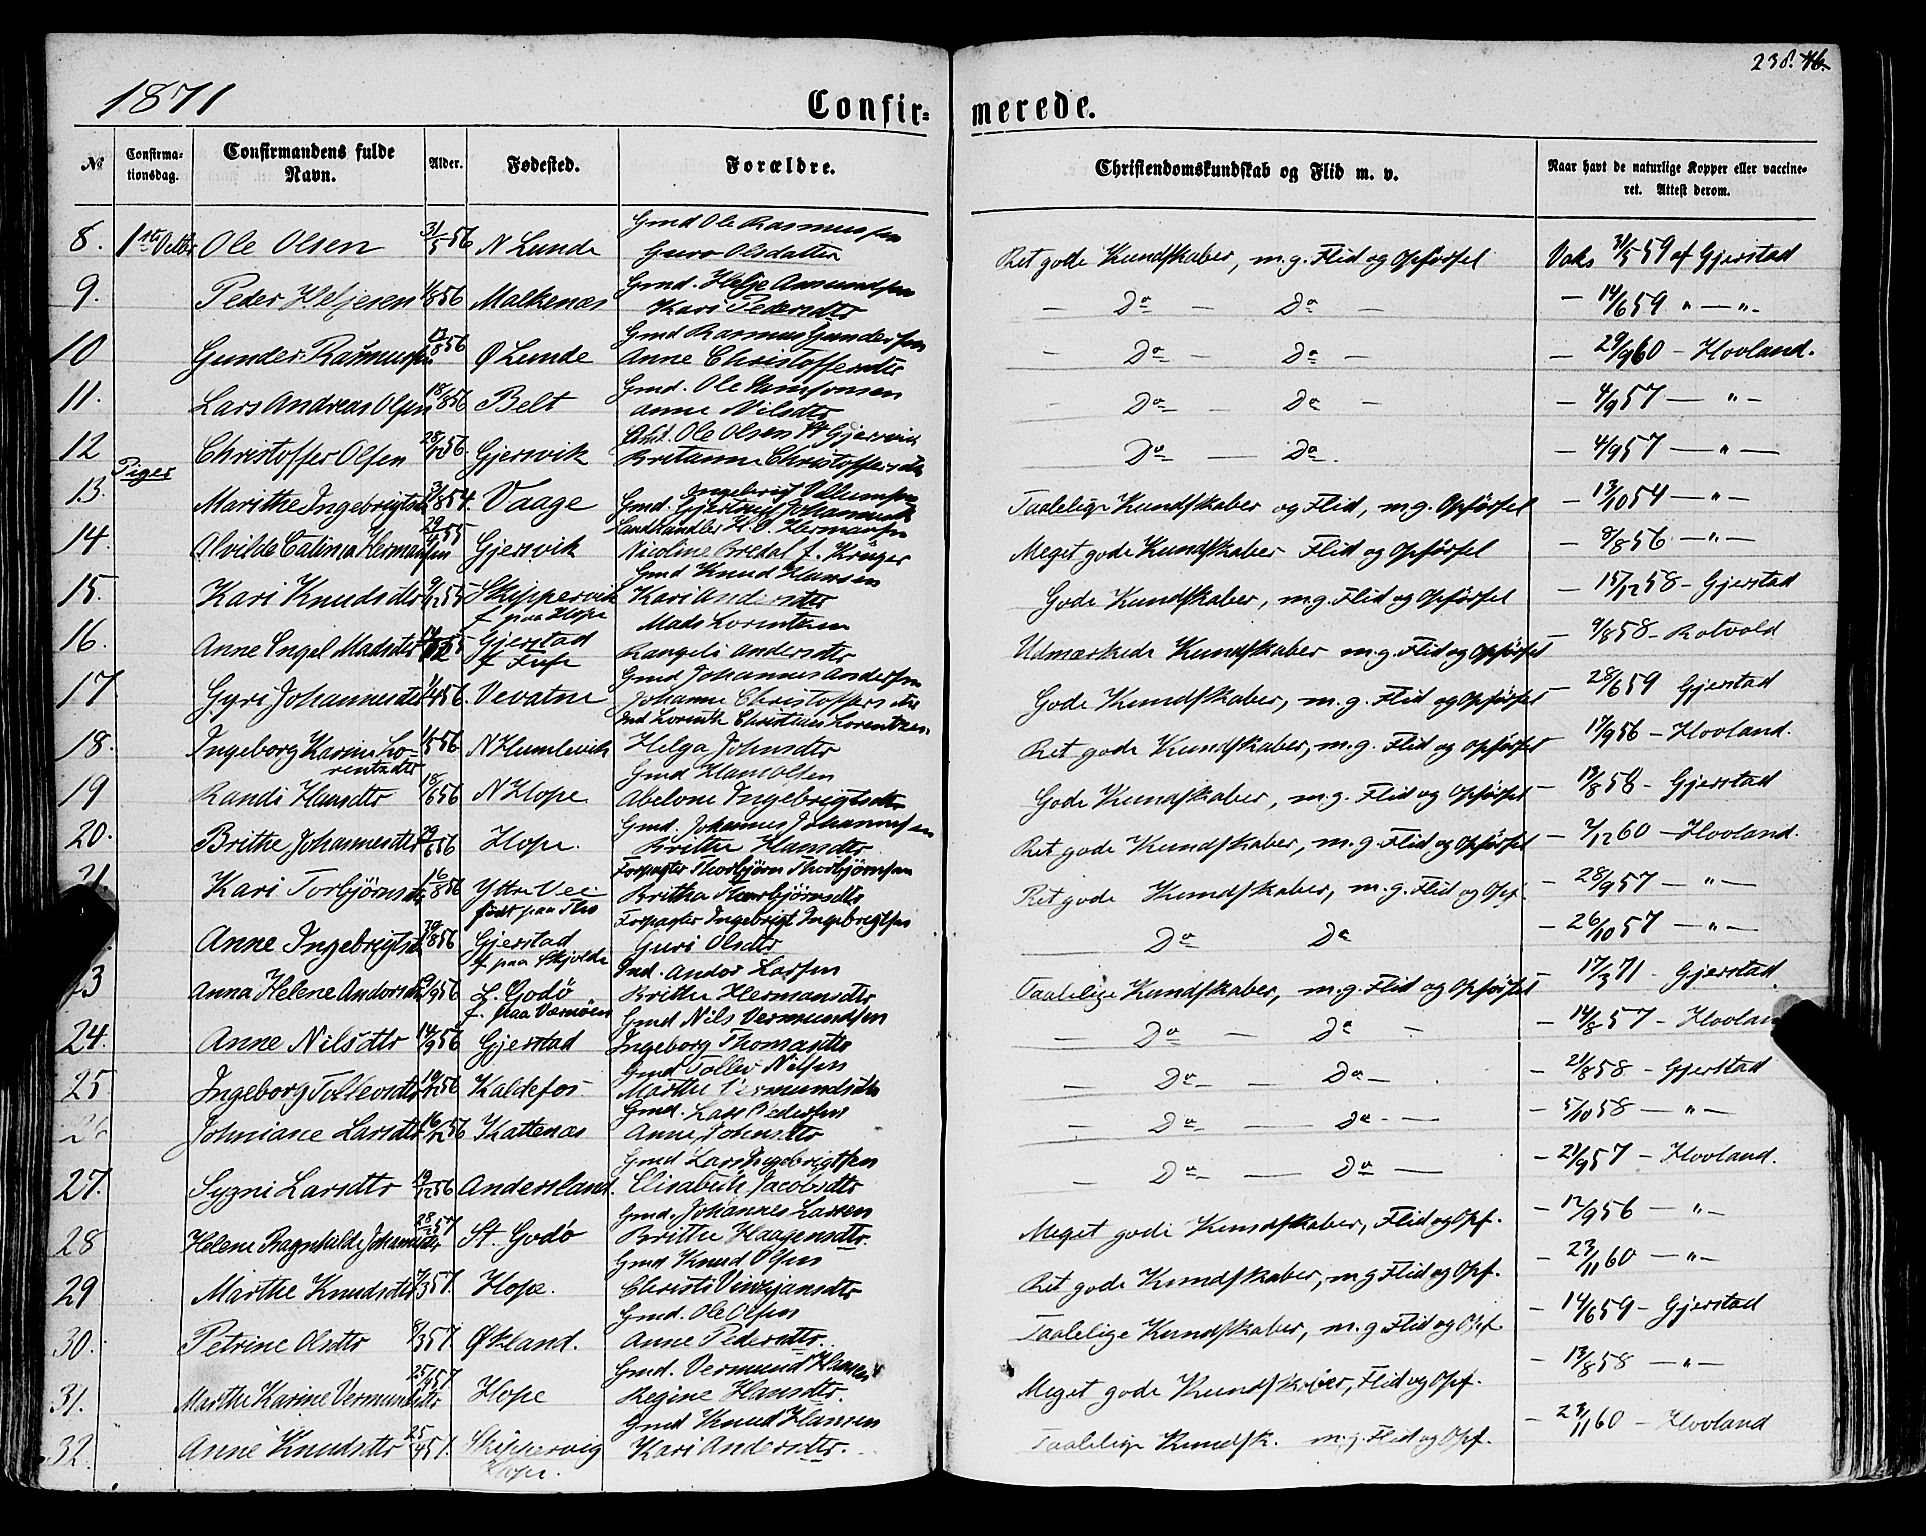 1871
Confir=
merede.
238. 46.
No
Confirma-
tionsdag.
Confirmandens fulde
Navn.
Alder.
Fødested.
Forældre.
Christendomskundskab og Flid m. v.
Naar havt de naturlige Kopper eller vaccine-
ret. Attest derom.
8. 1ste Octbr Ole Olsen 31/5 56 N Lunde Gmd Ole Rasmussen
Guro Olsdatter Ret gode Kundskaber, m.g. Flid og Opførsel Vaks 31/5 59 af Gjerstad
9. Peder Heljesen 56 Malkenæs Gmd. Helje Amundsen
Kari Pedersdtr — Do — Do — — 14/6 59 " — " —
10 Gunder Rasmussen 56 Ø Lunde Gmd Rasmus Gundersen
Anne Christoffersdtr — Do — Do — — 29/9 60 — Hovland.
11. Lars Andreas Olsen 18/8 56 Belt Gmd. Ole Samsonsen
Anne Nilsdtr — Do — Do — — 4/9 57 — " —
12 Christoffer Olsen 56. Gjersvik Gmd. Ole Olsen Gjersvik
Britanne Christoffersdtr Do — Do. — 4/9 57 — " —
Piger
13. Marithe Ingebrigtsdtr 3/8 54. Vaage Ingebrigt Villumsen
Gmd. Johannesdtr Taalelige Kundskaber og Flid, m.g. Opførsel — 13/10 54 — " —
14. Alvilde Catinca Hermansen 55 Gjersvik Landhandler H. O. Hermansen
Nicoline Bredal f. Krüger Meget gode Kundskaber Flid og Opførsel — 8/8 56 — " —
15. Kari Knudsdtr 9/12 55 Skippervik
f. paa Hope Gmd Knud Hansen
Kari Andersdtr Gode Kundskaber, m.g. Flid og Opførsel — 15/12 58 — Gjerstad
16. Anne Engel Madsdtr Gjerstad
f. Fuse Mads Lorentzen
Rangele Andersdtr Udmærkede Kundskaber m.g. Flid og Opførsel — 9/8 58 — Rotvold
17 Gyri Johannesdtr 1/4 56. Vevatne Gmd Johannes Andersen
Johanne Christoffersdtr Gode Kundskaber, m.g. Flid og Opførsel — 28/6 59 Gjerstad
18. Ingeborg Karine Lo-
rentsdtr 56 N Humlevik Christian Lorentzen
Helga Johnsdtr Ret gode Kundskaber, m.g. Flid og Opførsel — 17/9 56 — Hovland.
19 Randi Hansdtr 18/6 56 N Hope Gmd Hans Olsen
Abelone Ingebrigtsdtr Gode Kundskaber, m.g. Flid og Opførsel — 13/8 58 — Gjerstad
20. Brithe Johannesdtr 29/6 56 Hope. Gmd. Johannes Johannessen
Brithe Hansdtr Ret gode Kundskaber, m.g. Flid og Opførsel — 7/12 60 — Hovland.
21 Kari Torbjørnsdtr 16/8 56 Ytre Vee
født paa Forpagter Thorbjørn Thorbjørnsen
Britha Thorbjørnsdtr Ret gode Kundskaber, m.g. Flid og Opf. — 28/9 57 — " —
Anne Ingebrigtsdtr 30/8 56 Gjerstad
f. paa Skjolde Forpagter Ingebrigt Ingebrigtsen
Guri Olsdtr Do Do — 26/10 57 — " —
23 Anna Helene Andorsdtr 9 56 L. Godø
f. paa Værnøen Gmd. Andor Larsen
Brithe Hermansdtr Taalelige Kundskaber, m.g. Flid og Opførsel — 17/3 71 — Gjerstad.
24. Anne Nilsdtr 14/9 56 Gjerstad Gmd Nils Vermundsen
Ingeborg Thomasdtr — Do — Do — — 14/8 57 — Hovland
25 Ingeborg Tollevsdtr 19/12 56 Kaldefos Gmd Tollev Nilsen
Marthe Vermundsdtr — Do — Do — — 21/8 58 — Gjerstad
26 Johniane Larsdtr 16/12 56 Kattenæs Gmd. Lars Pedersen
Anne Johnsdtr — Do — Do — — 5/10 58 — " —
27. Sygni Larsdtr 19/12 56 Andersland. Gmd Lars Ingebrigtsen
Elisabeth Jacobsdtr — Do — Do — — 21/9 57 — Hovland.
28 Helene Ragnhilde Johannesdtr 28/2 57 St. Godø Gmd. Johannes Larsen
Brithe Haagensdtr. Meget gode Kundskaber, Flid og Opf. — 12/9 56 — " —
29 Marthe Knudsdtr 7/3 57. Hope. Gmd Knud Olsen
Christi Vinzjansdtr Ret gode Kundskaber, m.g Flid og Opf. — 23/11 60 — " —
30. Petrine Olsdtr 8/3 57. Økland. Gmd. Ole Olsen
Anne Pedersdtr. Taalelige Kundskaber, m.g Flid og Opf. — 14/6 59 — Gjerstad
31. Marthe Karine Vermundsdtr 25/4 57 Hope Gmd. Vermund Hansen
Regine Hansdtr. Meget gode Kundskaber, Flid og Opf. — 13/8 58 — " —
32. Anne Knudsdtr 25/4 57. Skippervig
Hope. Gmd Knud Hansen
Kari Andersdtr. Taalelige Kundsk. m.g. Flid og Opf. — 23/11 60 — Hovland